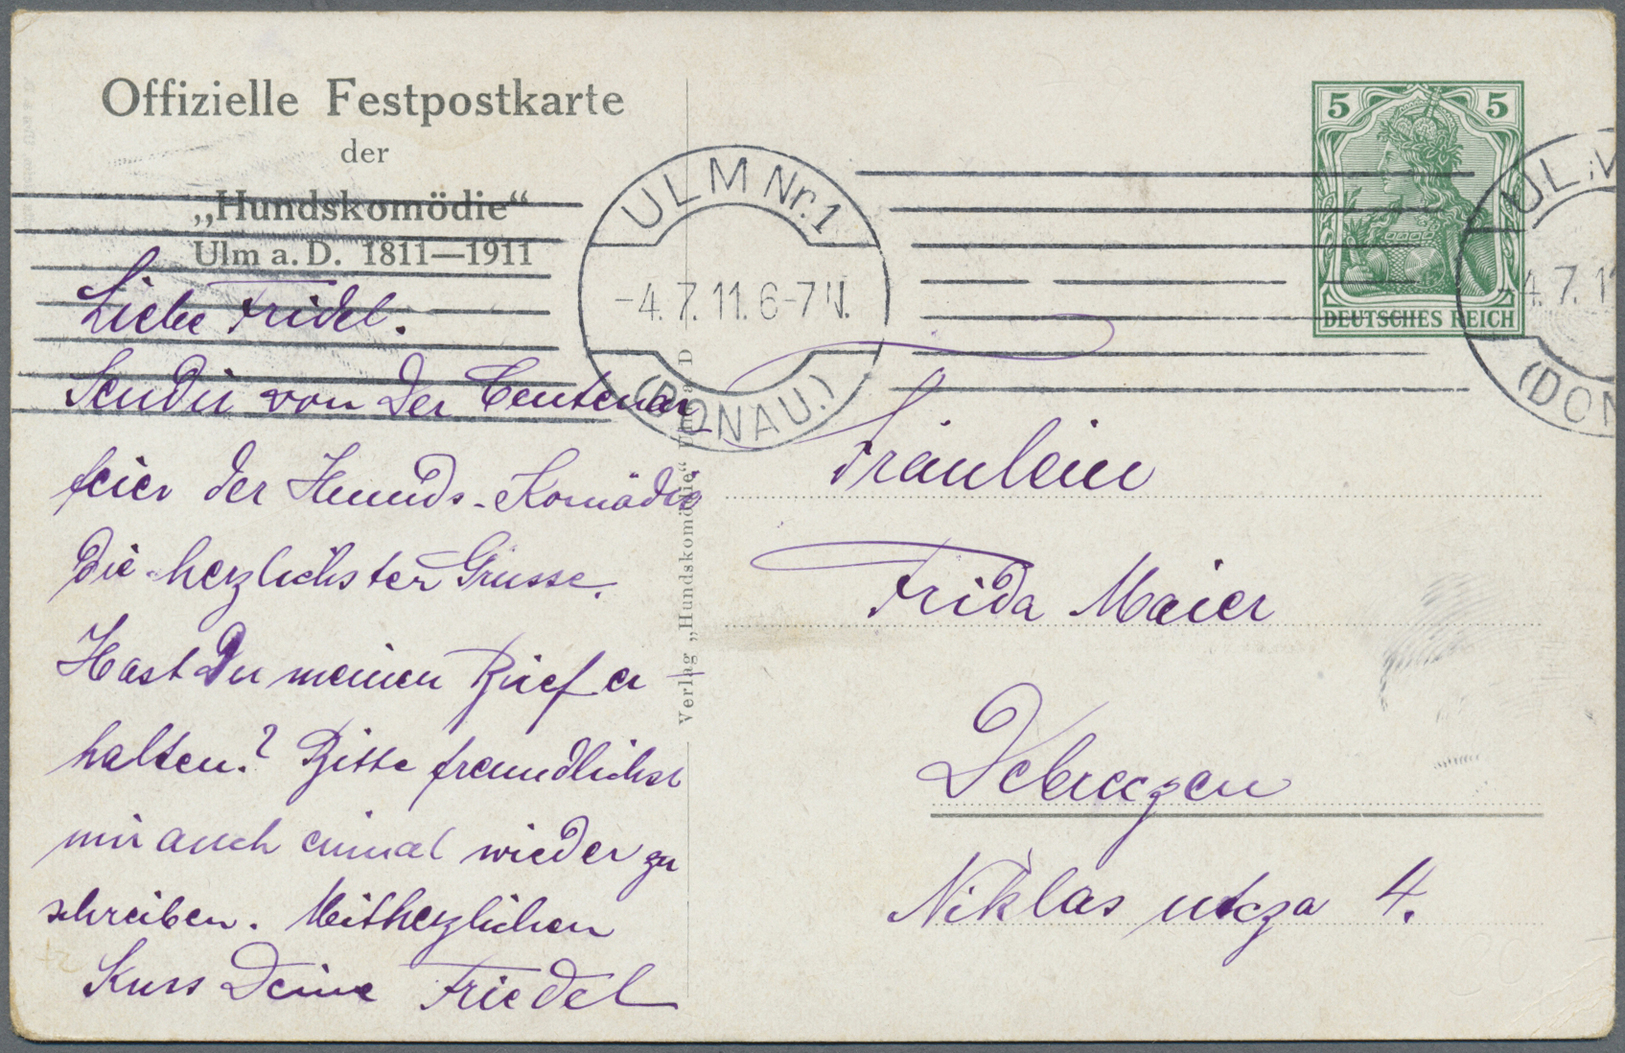 Offizielle Festpostkarte
der
„Hundskomödie“
Ulm a. D. 1811—1911
Liebe Fridel.
Sendir von der Centenar
feier der Hunds-Komödie
die herzlichsten Grüsse.
Hast Du meinen Brief er
halten? Bitte freundlichst
mir auch einmal wieder zu
schreiben. Mit herzlichen
Kuss Deine Friedel
Verlag „Hundskomödie“ Ulm a. D
ULM Nr. 1
-4.7.11.6-7N.
(DONAU.)
5 5
DEUTSCHES REICH
ULM
-4.7.11
(DON
Fräulein
Frida Maier
Debreczen
Niklas utcza 4.